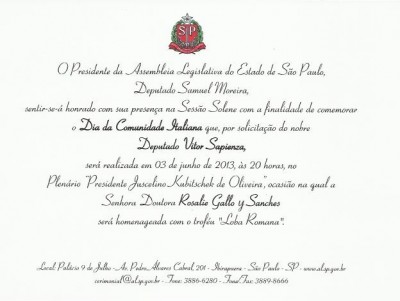 SP
O Presidente da Assembleia Legislativa do Estado de São Paulo,
Deputado Samuel Moreira,
sentir-se-á honrado com sua presença na Sessão Solene com a finalidade de comemorar
o Dia da Comunidade Italiana que, por solicitação do nobre
Deputado Vitor Sapienza,
será realizada em 03 de junho de 2013, às 20 horas, no
Plenário "Presidente Juscelino Kubitschek de Oliveira", ocasião na qual a
Senhora Doutora Rosalie Gallo y Sanches
será homenageada com o troféu "Loba Romana".
Local: Palácio 9 de Julho - Av. Pedro Álvares Cabral, 201 - Ibirapuera - São Paulo - SP - www.al.sp.gov.br
cerimonial@al.sp.gov.br - Fone: 3886-6280 - Fone/Fax: 3889-8666